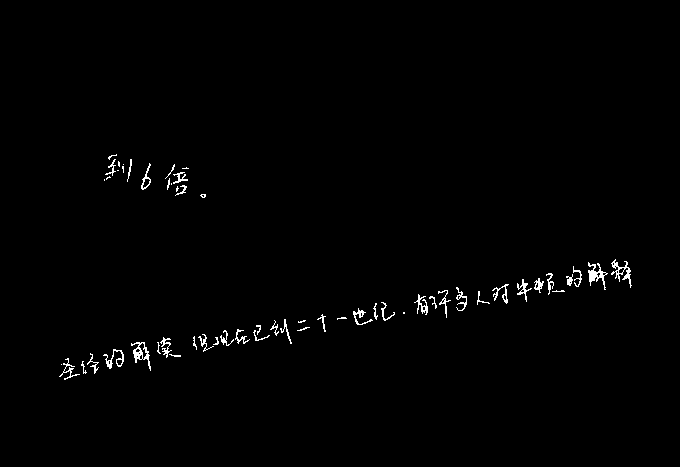 到6倍。
圣经的解读但现在已到二十一世纪.有许多人对牛顿的解释